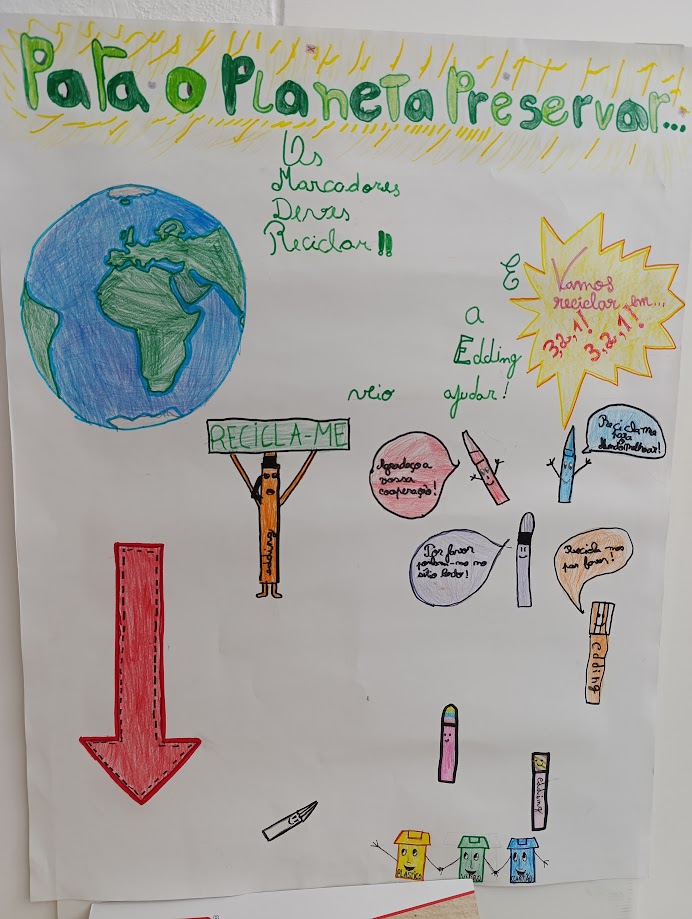 Para o Planeta Preservar...
Os
Marcadores
Deves
Reciclar!!
E
a
Edding
veio ajudar!
Vamos
reciclar em...
3,2,1!
3,2,1!
RECICLA-ME
edding
Agradeço a
vossa
cooperação!
Recicla-me
para
Por favor
ponham-me no
sítio
Recicla-nos
por favor!
edding
edding
PLÁSTICO